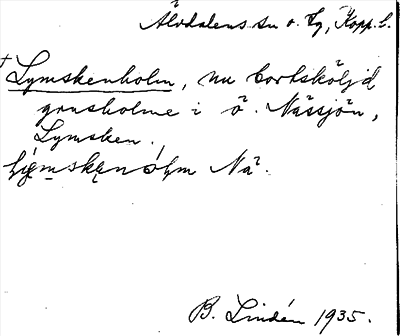 Älvdalens sn o. tg, Kopp. l.
† Lymskenholm, nu bortsköljd
grusholme i ö. Nässjön,
Lymsken.
Nä.
B. Lindén 1935.